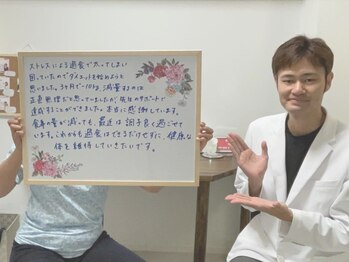 ストレスによる過食で太ってしまい
困っていたのでダイエットを始めようと
思いました。3ヶ月で-10kg減量するのは
正直無理だと思っていましたが、先生のサポートで
達成することができました。本当に感謝しています。
食事の量が減っても、最近は調子良く過ごせて
います。これからも過食はできるだけせずに、健康な
体を維持していきたいです。